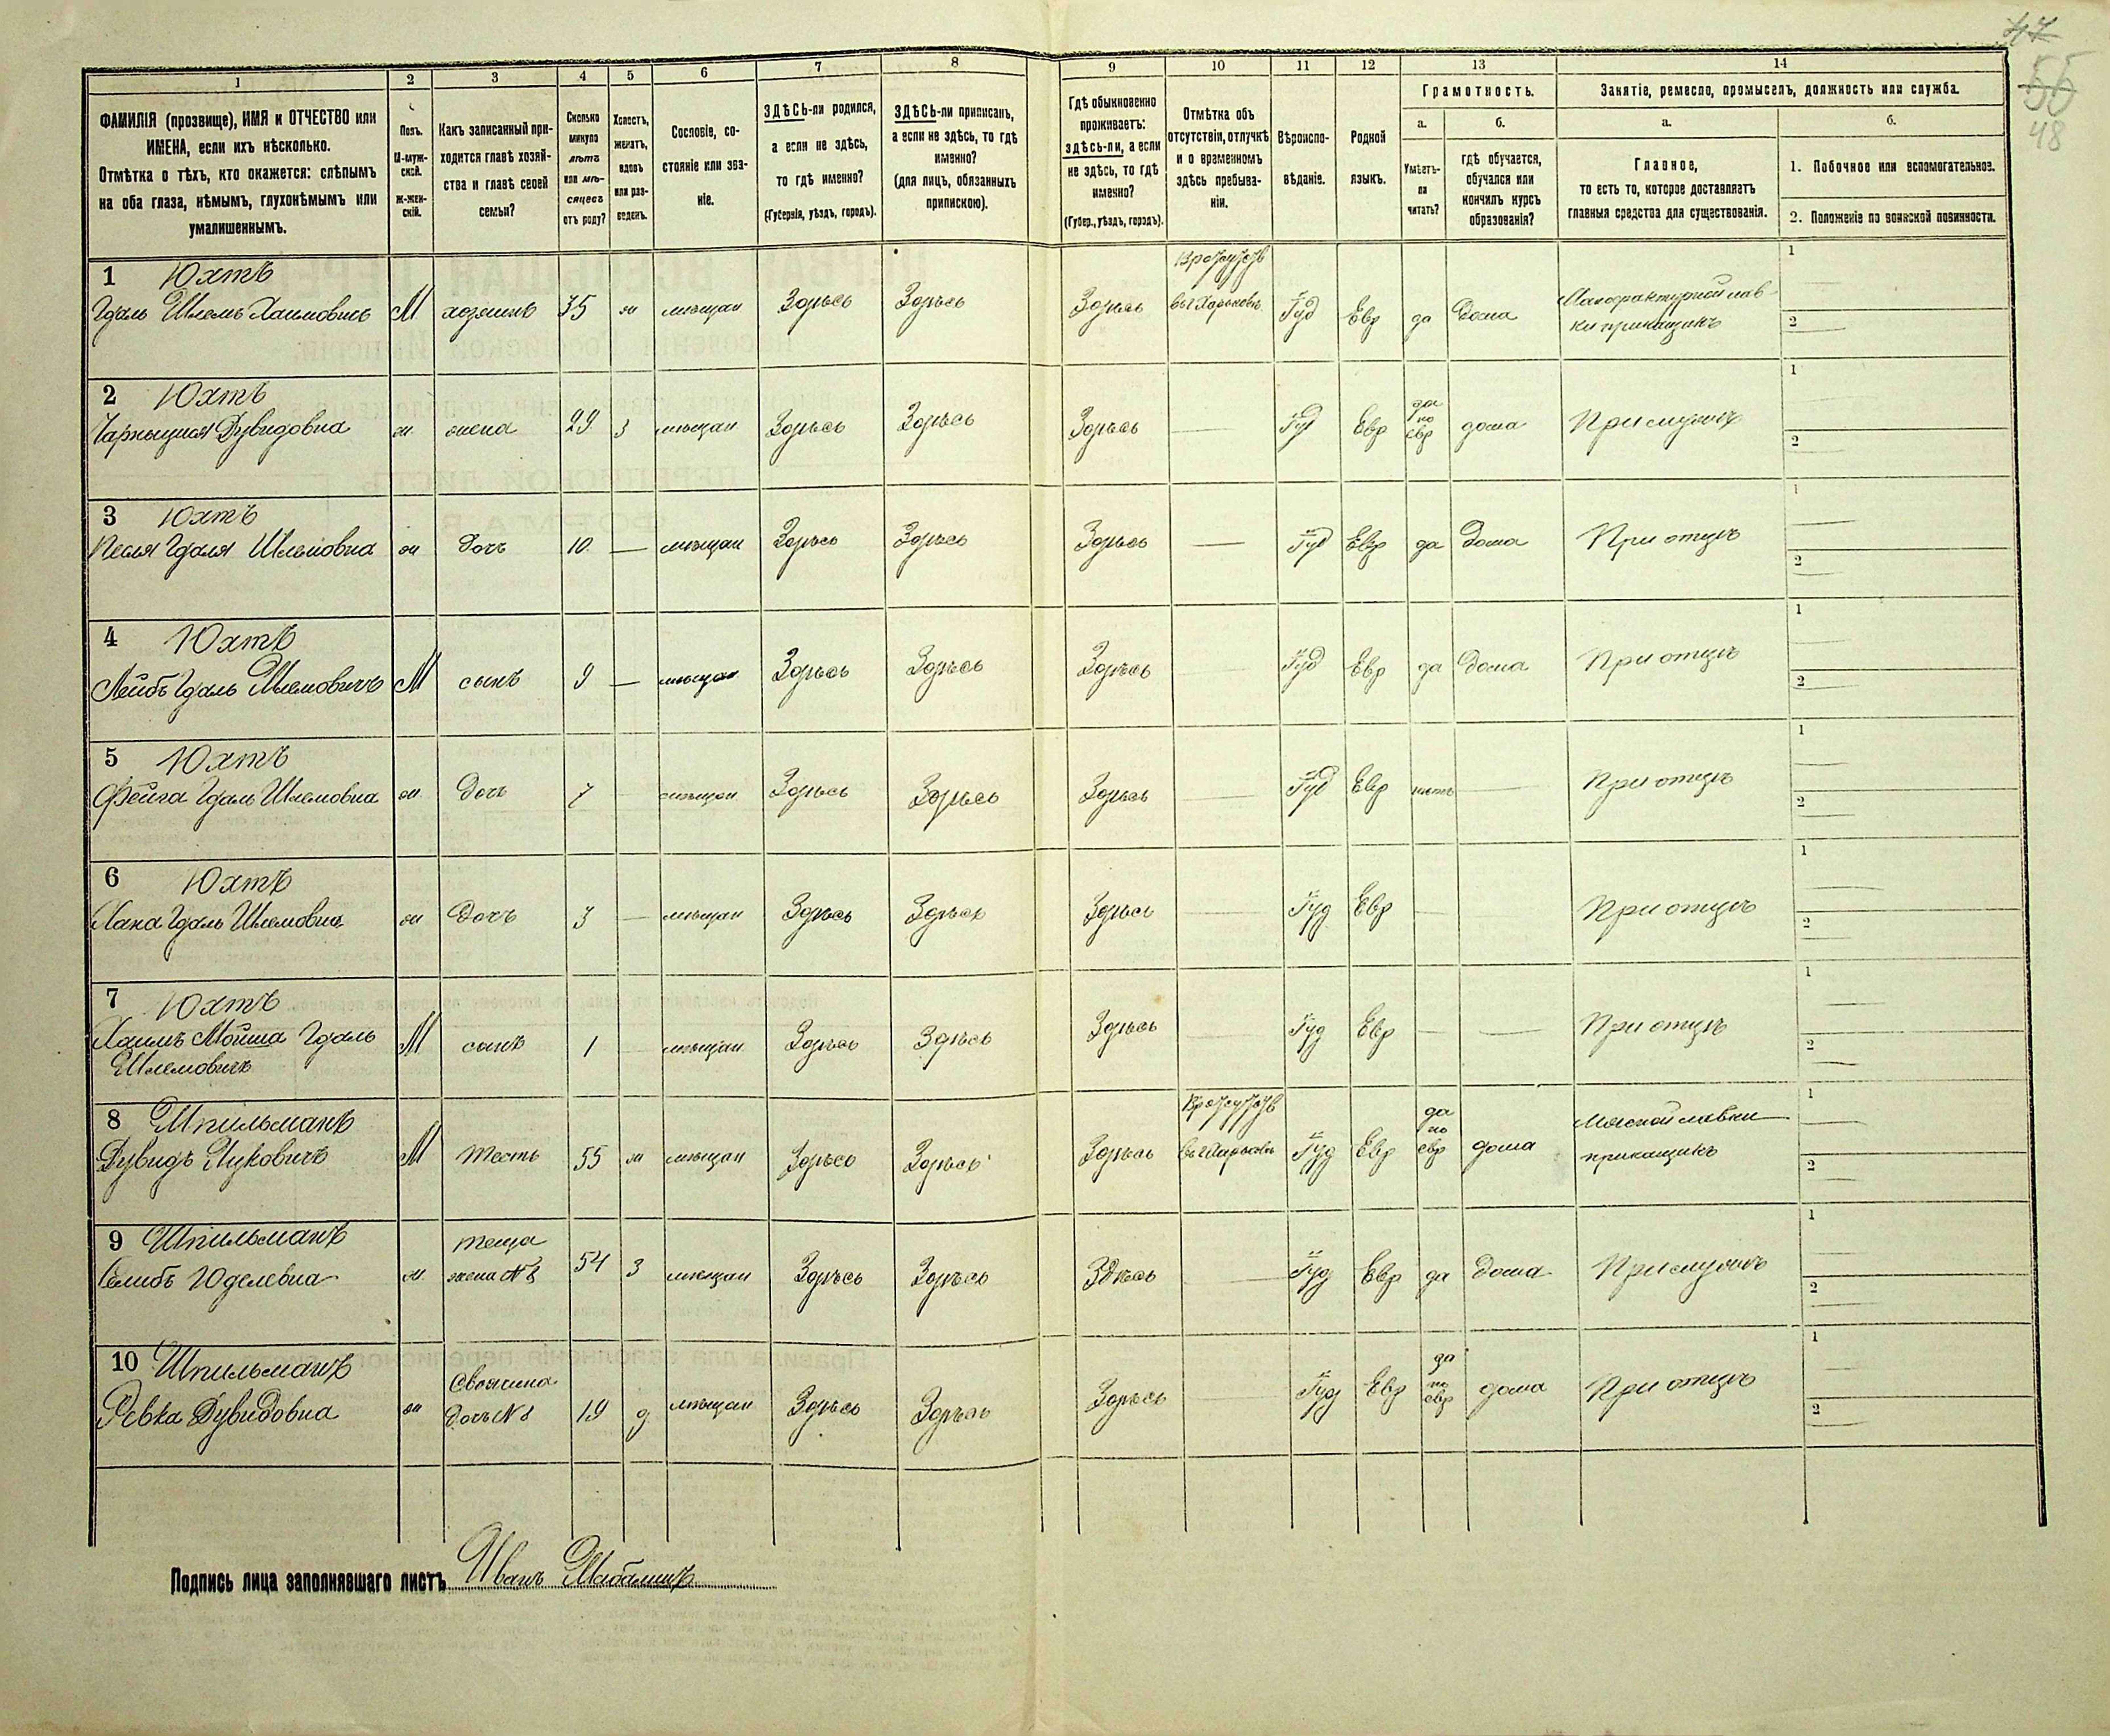 47
56
48
1 2 3 4 5 6 7 8 9 10 11 12 13 14
ФАМИЛІЯ (прозвище), ИМЯ и ОТЧЕСТВО или
ИМЕНА, если ихъ нѣсколько.
Отмѣтка о тѣхъ, кто окажется: слѣпымъ
на оба глаза, нѣмымъ, глухонѣмымъ или
умалишеннымъ.
Полъ.
М-муж-
ской.
Ж-жен-
скій.
Какъ записанный при-
ходится главѣ хозяй-
ства и главѣ своей
семьи?
Сколько
минуло
лѣтъ
или мѣ-
сяцевъ
отъ роду?
Холостъ,
женатъ,
вдовъ
или раз-
веденъ.
Сословіе, со-
стояніе или зва-
ніе.
ЗДѢСЬ-ли родился,
а если не здѣсь,
то гдѣ именно?
(Губернія, уѣздъ, городъ).
ЗДѢСЬ-ли приписанъ,
а если не здѣсь, то гдѣ
именно?
(для лицъ, обязанныхъ
припискою).
Гдѣ обыкновенно
проживаетъ:
здѣсь-ли, а если
не здѣсь, то гдѣ
именно?
(Губер., уѣздъ, городъ).
Отмѣтка объ
отсутствіи, отлучкѣ
и о временномъ
здѣсь пребыва-
ніи.
Вѣроиспо-
вѣданіе.
Родной
языкъ.
Грамотность.
а.
Умѣетъ-
ли
читать?
б.
гдѣ обучается,
обучался или
кончилъ курсъ
образованія?
Занятіе, ремесло, промыселъ, должность или служба.
а.
Главное,
то есть то, которое доставляетъ
главныя средства для существованія.
б.
1. Побочное или вспомогательное.
2. Положеніе по воинской повинности.
1 Юхтъ
Гдаль Шлемъ Хаимовичъ М хозяинъ 35 ж мѣщан Здѣсь Здѣсь Здѣсь въ г Харьковъ Іуд Евр да Дома Мануфактурной лав-
ки прикащикъ 1 2
2 Юхтъ
Дувидовна ж жена 29 з мѣщан Здѣсь Здѣсь Здѣсь — Іуд Евр да по евр дома При мужѣ 1 2
3 Юхтъ
Песля Гдаля Шлемовна ж Дочь 10 — мѣщан Здѣсь Здѣсь Здѣсь — Іуд Евр да Дома При отцѣ 1 2
4 Юхтъ
Лейбъ Гдаль Шлемовичъ М сынъ 9 — мѣщан Здѣсь Здѣсь Здѣсь — Іуд Евр да Дома При отцѣ 1 2
5 Юхтъ
Фейга Гдаль Шлемовна ж Дочь 7 — мѣщан Здѣсь Здѣсь Здѣсь — Іуд Евр нѣтъ — При отцѣ 1 2
6 Юхтъ
Хана Гдаль Шлемовна ж Дочь 3 — мѣщан Здѣсь Здѣсь Здѣсь — Іуд Евр — При отцѣ 1 2
7 Юхтъ
Хаимъ Мойша Гдаль
Шлемовичъ М сынъ 1 — мѣщан Здѣсь Здѣсь Здѣсь — Іуд Евр — — При отцѣ 1 2
8 Шпильманъ
Дувидъ Ицковичъ М Тесть 55 ж мѣщан Здѣсь Здѣсь Здѣсь въ г Харьковъ Іуд Евр да по евр дома Мясной лавки
прикащикъ 1 2
9 Шпильманъ
Юделевна ж теща
жена №8 54 з мѣщан Здѣсь Здѣсь Здѣсь — Іуд Евр да Дома При мужѣ 1 2
10 Шпильманъ
Ревка Дувидовна ж Свояченица
Дочь №8 19 д мѣщан Здѣсь Здѣсь Здѣсь — Іуд Евр да по евр дома При отцѣ 1 2
Подпись лица заполнявшаго листъ Иванъ